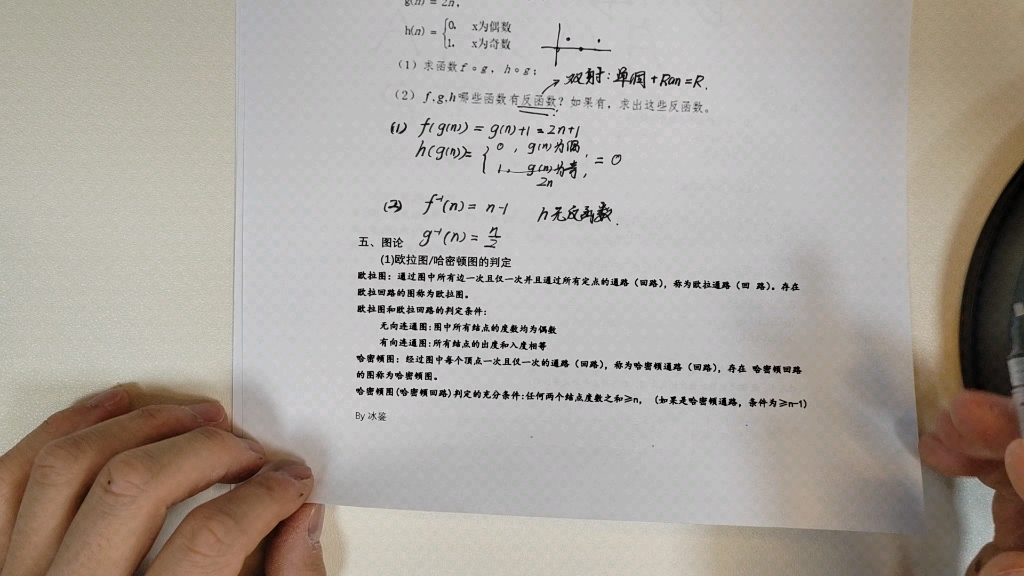 g(n) = 2n,
h(n) = {0, x为偶数
1, x为奇数
(1) 求函数f∘g, h∘g;
双射:单闭+Ran=R.
(2) f,g,h哪些函数有反函数?如果有,求出这些反函数。
(1) f(g(n)) = g(n)+1 = 2n+1
h(g(n)) = { 0, g(n)为偶, = 0
1, g(n)为奇,
2n
(2) f⁻¹(n) = n-1 h无反函数.
g⁻¹(n) = n/2
五、图论
(1)欧拉图/哈密顿图的判定
欧拉图:通过图中所有边一次且仅一次并且通过所有定点的通路(回路),称为欧拉通路(回 路)。存在
欧拉回路的图称为欧拉图。
欧拉图和欧拉回路的判定条件:
无向连通图:图中所有结点的度数均为偶数
有向连通图:所有结点的出度和入度相等
哈密顿图:经过图中每个顶点一次且仅一次的通路(回路),称为哈密顿通路(回路),存在 哈密顿回路
的图称为哈密顿图。
哈密顿图(哈密顿回路)判定的充分条件:任何两个结点度数之和≥n, (如果是哈密顿通路,条件为≥n-1)
By 冰鉴